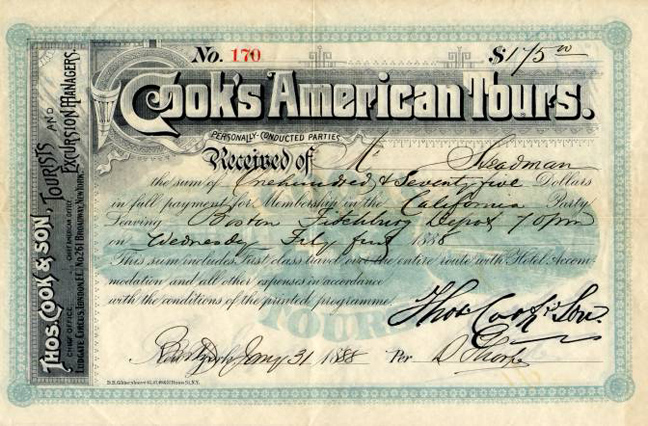 No. 170 $175 00
Cook's American Tours.
PERSONALLY-CONDUCTED PARTIES
Received of Mr Steadman
the sum of Onehundred & Seventy five Dollars
in full payment for Membership on the California Party
Leaving Boston Fitchburg Depot 7 0 pm
on Wednesday Feby first 1888
This sum includes First class travel over the entire route with Hotel Accom-
modation and all other expenses in accordance
with the conditions of the printed programme
Thos Cook & Son.
Jany 31 1888 Per
THOS. COOK & SON, TOURISTS AND EXCURSION MANAGERS.
CHIEF OFFICE LUDGATE CIRCUS, LONDON E.C.
CHIEF AMERICAN OFFICE No 261 BROADWAY, NEW YORK.
TOUR